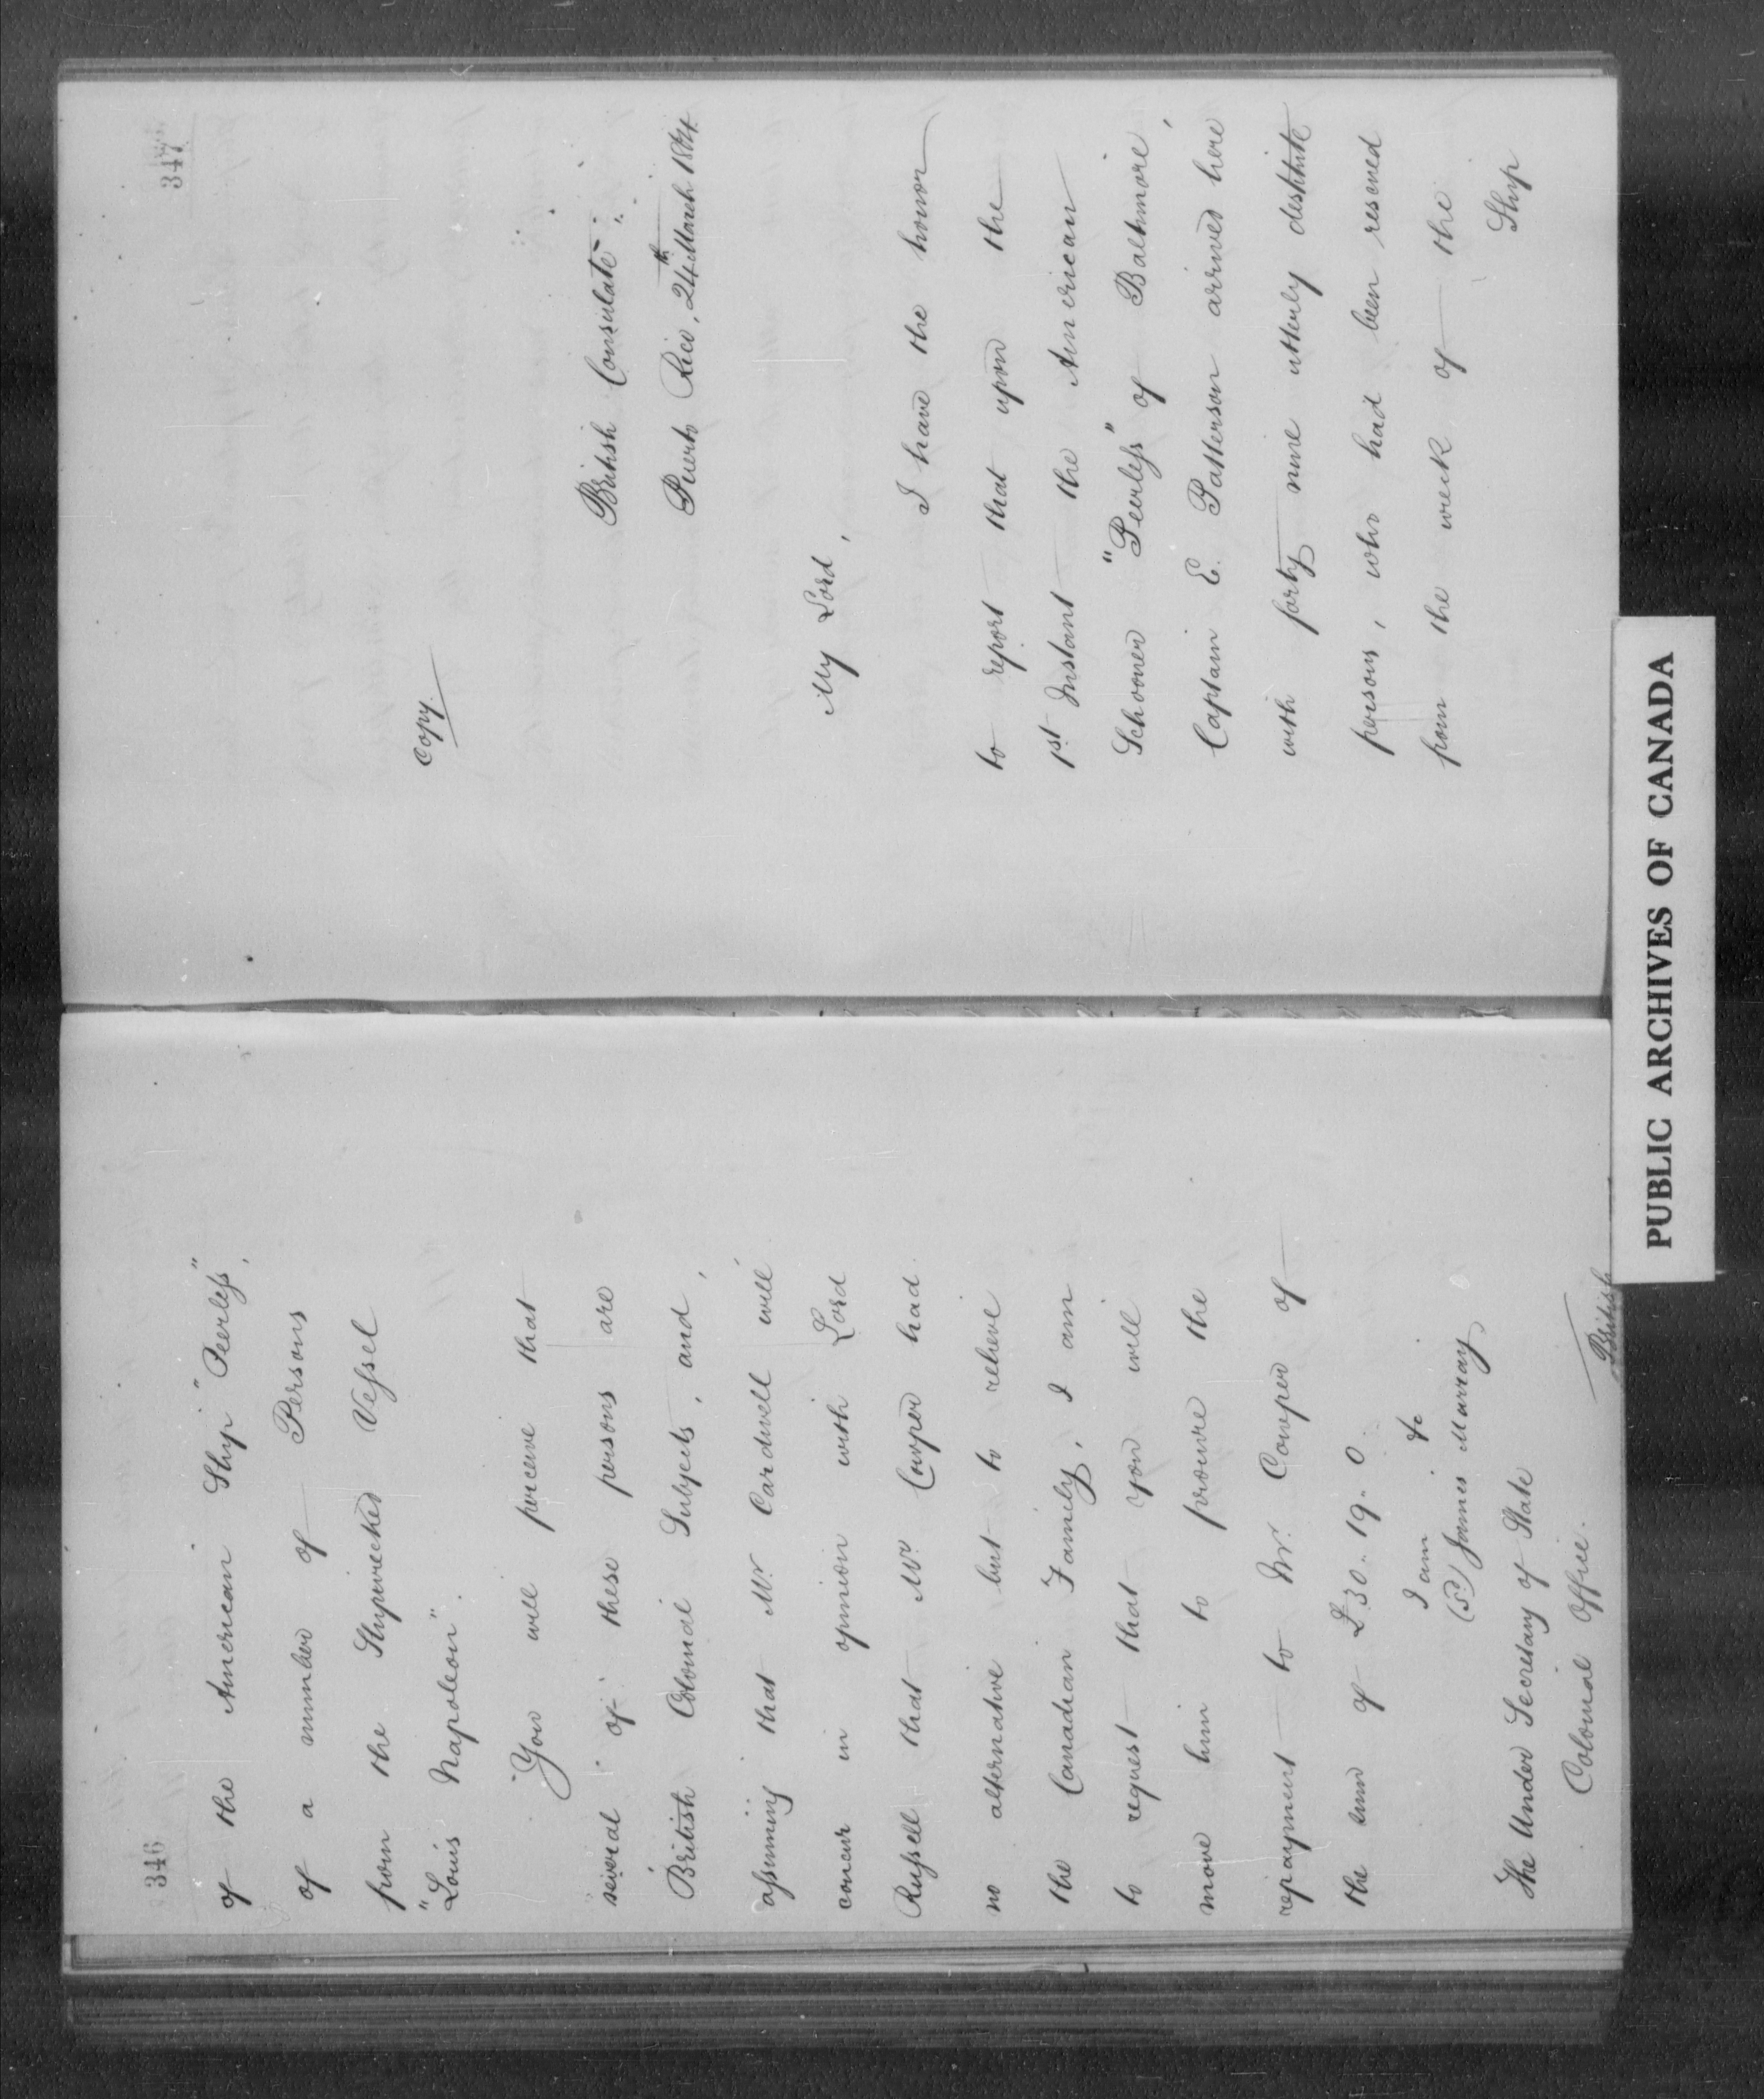 346
of the American Ship "Peerless",
of a number of Persons
from the Shipwrecked Vessel
"Louis Napoleon".
You will perceive that
several of these persons are
British Colonial Subjects, and,
assuming that Mr. Cardwell will
concur in opinion with Lord
Russell that Mr. Cowper had
no alternative but to relieve
the Canadian Family, I am
to request that you will
move him to procure the
repayment to Mr. Cowper of
the sum of £30.19.0.
I am &c
(Sd) James Murray
The Under Secretary of State
Colonial Office.
British
347
Copy.
British Consulate
Puerto Rico, 24th March 1864.
My Lord,
I have the honor
to report that upon the
1st Instant the American
Schooner "Peerless" of Baltimore,
Captain E. Patterson arrived here
with forty nine utterly destitute
persons, who had been rescued
from the wreck of the
Ship
PUBLIC ARCHIVES OF CANADA